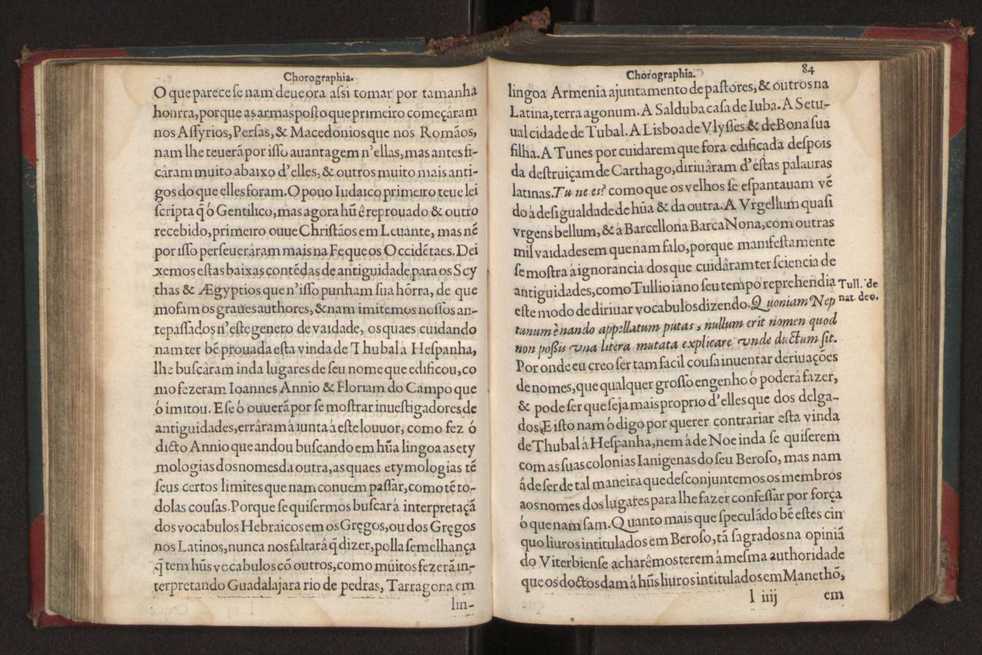 Chorographia.
O que parece se nam deue ora assi tomar por tamanha
honrra, porque as armas posto que primeiro começáram
nos Assyrios, Persas, & Macedonios que nos Romãos,
nam lhe teuerã por isso auantagem n'ellas, mas antes fi-
cáram muito abaixo d'elles, & outros muito mais anti-
gos do que elles foram. O pouo Iudaico primeiro teue lei
scripta q̃ ó Gentilico, mas agora hũ é reprouado & outro
recebido, primeiro ouue Christãos em Leuante, mas nẽ
por isso perseueráram mais na Fe que os Occidẽtaes. Dei
xemos estas baixas contẽdas de antiguidade para os Scy
thas & Ægyptios que n'isso punham sua hõrra, de que
mofam os graues authores, & nam imitemos nossos an-
tepassados n'este genero de vaidade, os quaes cuidando
nam ter bẽ prouada esta vinda de Thubal à Hespanha,
lhe buscáram inda lugares de seu nome que edificou, co
mo fezeram Ioannes Annio & Floriam do Campo que
ó imitou. E se ó ouuerã por se mostrar inuestigadores de
antiguidades, erráram à iunta à este louuor, como fez ó
dicto Annio que andou buscando em hũa lingoa as ety
mologias dos nomes da outra, as quaes etymologias tẽ
seus certos limites que nam conuem passar, como tẽ to-
dolas cousas. Porque se quisermos buscar à interpretaçã
dos vocabulos Hebraicos em os Gręgos, ou dos Gręgos
nos Latinos, nunca nos faltará q̃ dizer, polla semelhança
q̃ tem hũs vocabulos cõ outros, como muitos fezerã in-
terpretando Guadalajara rio de pedras, Tarragona em
lin-
Chorographia. 84
lingoa Armenia ajuntamento de pastóres, & outros na
Latina, terra agonum. A Salduba casa de Iuba. A Setu-
ual cidade de Tubal. A Lisboa de Vlysses & de Bona sua
filha. A Tunes por cuidarem que fora edificada despois
da destruiçam de Carthago, diriuáram d'estas palauras
latinas. Tu ne es? como que os velhos se espantauam vẽ
do à desigualdade de hũa & da outra. A Vrgellum quasi
vrgens bellum, & à Barcellona Barca Nona, com outras
mil vaidades em que nam falo, porque manifestamente
se mostra à ignorancia dos que cuidáram ter sciencia de
antiguidades, como Tullio ia no seu tempo reprehendia
este modo de diriuar vocabulos dizendo. Quoniam Nep
Tull. de
nat. deo.
tunum à nando appellatum putas, nullum erit nomen quod
non possis vna litera mutata explicare vnde ductum sit.
Por onde eu creo ser tam facil cousa inuentar deriuações
de nomes, que qualquer grosso engenho ó poderá fazer,
& pode ser que seja mais proprio d'elles que dos delga-
dos. E isto nam ó digo por querer contrariar esta vinda
de Thubal à Hespanha, nem à de Noe inda se quiserem
com as suas colonias Ianigenas do seu Beroso, mas nam
à de ser de tal maneira que desconjuntemos os membros
aos nomes dos lugares para lhe fazer confessar por força
ó que nam sam. Quanto mais que speculãdo bẽ estes cin
quo liuros intitulados em Beroso, tã sagrados na opiniã
do Viterbiense acharêmos terem à mesma authoridade
que os doctos dam à hũs liuros intitulados em Manethõ,
l iiij em